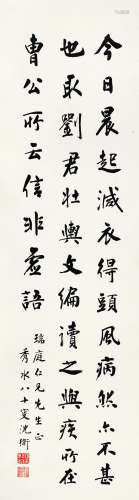 今日晨起減衣得頭風病然亦不甚
也取劉君壯輿文編讀之與疾所在
曹公所云信非虛語
瑞庭仁兄先生正
秀水八十叟沈衛